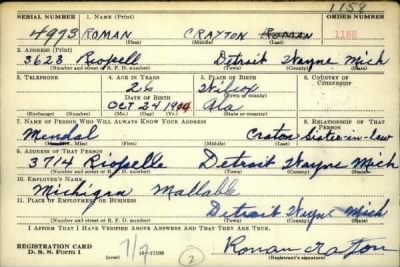 1158
SERIAL NUMBER 1. NAME (Print) ORDER NUMBER
4973 ROMAN CRAXTON ROMAN 1158
(First) (Middle) (Last)
2. ADDRESS (Print)
3623 Riopell Detroit Wayne Mich
(Number and street or R. F. D. number) (Town) (County) (State)
3. TELEPHONE 4. AGE IN YEARS 5. PLACE OF BIRTH 6. COUNTRY OF CITIZENSHIP
26 Wilcox
DATE OF BIRTH (Town or county)
OCT 24 Ala
(Exchange) (No.) (Mo.) (Day) (Yr.) (State or country)
7. NAME OF PERSON WHO WILL ALWAYS KNOW YOUR ADDRESS 8. RELATIONSHIP OF THAT PERSON
Mendal Craton Sister-in-law
(First) (Middle) (Last)
9. ADDRESS OF THAT PERSON
3714 Riopelle Detroit Wayne Mich
(Number and street or R. F. D. number) (Town) (County) (State)
10. EMPLOYER'S NAME
Michigan Mallable
11. PLACE OF EMPLOYMENT OR BUSINESS
Detroit Wayne Mich
(Number and street or R. F. D. number) (Town) (County) (State)
I AFFIRM THAT I HAVE VERIFIED ABOVE ANSWERS AND THAT THEY ARE TRUE.
REGISTRATION CARD
D. S. S. Form 1
(2)
Roman Craton
(Registrant's signature)